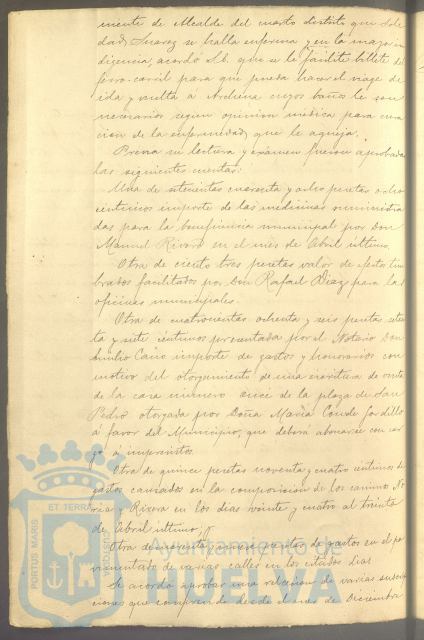 niente de Alcalde del cuarto distrito que Sole
dad Suarez se halla enferma y en la mayor in
digencia, acordo S.E. que se le facilite billete de
ferro-carril para que pueda hacer el viage de
ida y vuelta á Archena cuyos baños le son
necesarios segun opinion médica para cura
cion de la enfermedad que le aqueja.
Previa su lectura y exámen fueron aprobadas
las siguientes cuentas:
Una de setecientas cuarenta y ocho pesetas ocho
céntimos importe de las medicinas suministra
das para la beneficencia municipal por Don
Manuel Rivero en el mes de Abril último.
Otra de ciento tres pesetas valor de efectos tim
brados facilitados por Don Rafael Diaz para las
oficinas municipales.
Otra de cuatrocientas ochenta y seis pesetas seten
ta y siete céntimos presentada por el Notario Don
Emilio Cano importe de gastos y honorarios con
motivo del otorgamiento de una escritura de venta
de la casa número once de la plaza de San
Pedro otorgada por Doña Maria Conde
á favor del Municipio, que deberá abonarse con car
go a imprevistos.
Otra de quince pesetas noventa y cuatro céntimos de
gastos causados en la composicion de los caminos
y Rivera en los dias veinte y cuatro al treinta
de Abril último.
Otra de pesetas de gastos en el pa
vimentado de varias calles en los citados dias
Se acordó aprobar una relacion de varias
ciones que comprende desde el mes de Diciembre
PORTUS MARIS ET TERRAE CUSTODIA
Ayuntamiento de
HUELVA